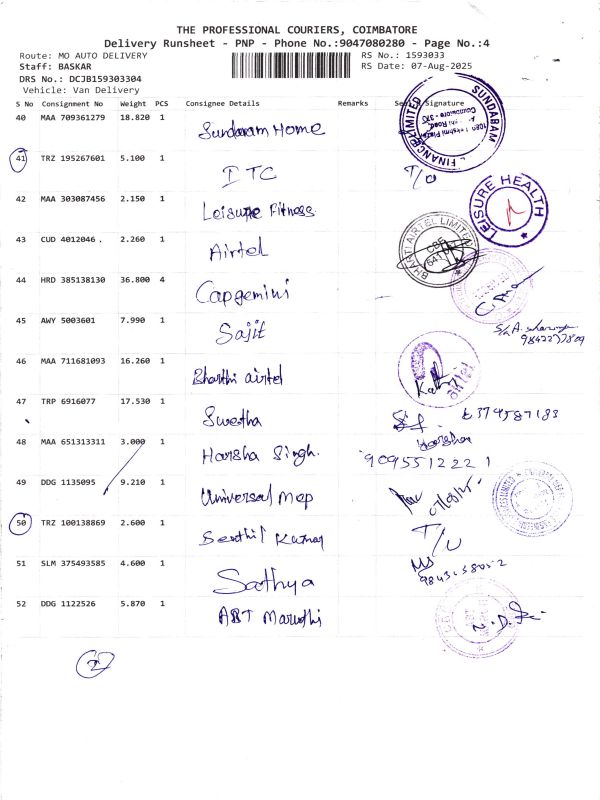 THE PROFESSIONAL COURIERS, COIMBATORE
Delivery Runsheet - PNP - Phone No.:9047080280 - Page No.:4
Route: MO AUTO DELIVERY RS No.: 1593033
Staff: BASKAR RS Date: 07-Aug-2025
DRS No.: DCJB159303304
Vehicle: Van Delivery
S No Consignment No Weight PCS Consignee Details Remarks Signature
40 MAA 709361279 18.820 1 Sundaram Home
SUNDARAM FINANCE LIMITED
41 TRZ 195267601 5.100 1 ITC T/O
42 MAA 303087456 2.150 1 Leisure Fitness
LEISURE HEALTH
43 CUD 4012046 . 2.260 1 Airtel
BHARTI AIRTEL LIMITED
44 HRD 385138130 36.800 4 Capgemini
45 AWY 5003601 7.990 1 Sajit
46 MAA 711681093 16.260 1 Bharthi airtel
47 TRP 6916077 17.530 1 Swetha 6374587183
48 MAA 651313311 3.000 1 Harsha Singh. Harsha
9095512221
49 DDG 1135095 9.210 1 Universal Map
50 TRZ 100138869 2.600 1 Senthil Kumar T/O
51 SLM 375493585 4.600 1 Sathya
52 DDG 1122526 5.870 1 ABT Maruthi
2